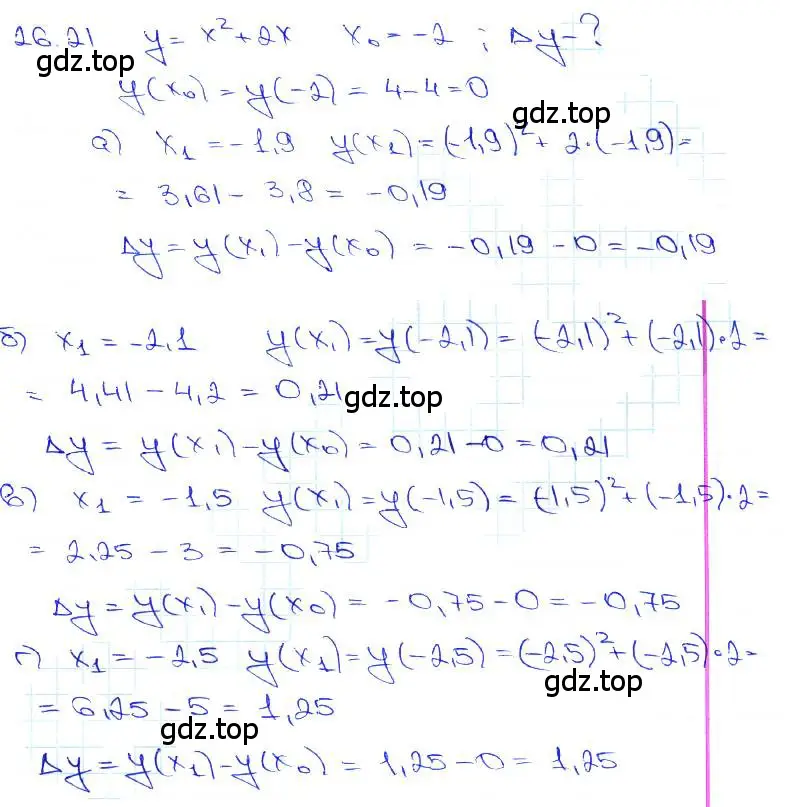 26.21 y = x² + 2x x₀ = -2 ; Δy-?
gdz.top
y(x₀) = y(-2) = 4-4=0
gdz.top
а) x₁ = -1,9 y(x₁) = (-1,9)² + 2·(-1,9)=
= 3,61 - 3,8 = -0,19
Δy = y(x₁) - y(x₀) = -0,19 - 0 = -0,19
б) x₁ = -2,1 y(x₁) = y(-2,1) = (-2,1)² + (-2,1)·2 =
= 4,41 - 4,2 = 0,21
gdz.top
Δy = y(x₁) - y(x₀) = 0,21 - 0 = 0,21
в) x₁ = -1,5 y(x₁) = y(-1,5) = (-1,5)² + (-1,5)·2 =
= 2,25 - 3 = -0,75
Δy = y(x₁) - y(x₀) = -0,75 - 0 = -0,75
г) x₁ = -2,5 y(x₁) = y(-2,5) = (-2,5)² + (-2,5)·2 =
gdz.top
= 6,25 - 5 = 1,25
gdz.top
Δy = y(x₁) - y(x₀) = 1,25 - 0 = 1,25